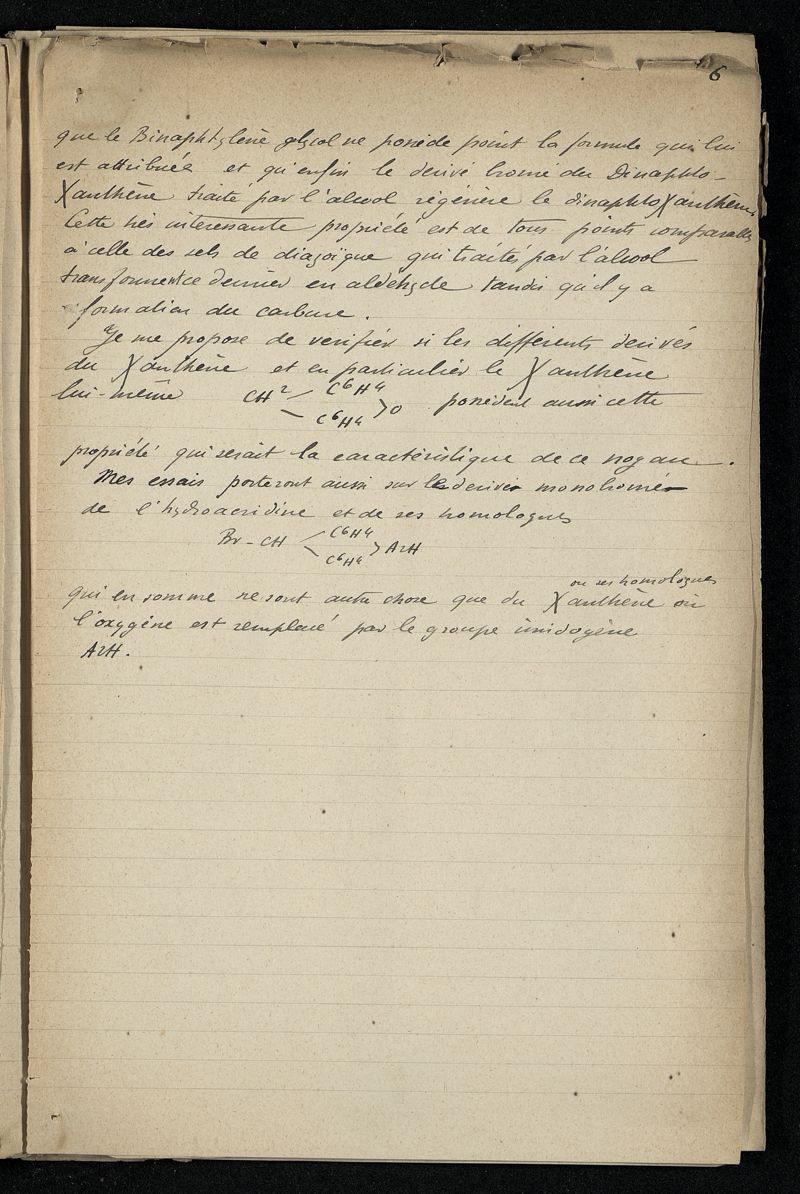 6
que le Binaphtylène glycol ne possède point la formule qui lui
est attribuée et qu'enfin le derivé bromé du Dinaphto-
Xanthène traité par l'alcool régénère le dinaphtoXanthène.
Cette très intéressante propriété est de tous points comparable
à celle des sels de diazoïque qui traités par l'alcool
transforment ce dernier en aldéhyde tandis qu'il y a
formation du carbure.
Je me propose de verifier si les différents derivés
du Xanthène et en particulier le Xanthène
lui-même CH² < C⁶H⁴ C⁶H⁴ > O possèdent aussi cette
propriété qui serait la caractéristique de ce noyau.
Mes essais porteront aussi sur le derivé monobromé
de l'hydroacridine et de ses homologues
Br - CH < C⁶H⁴ C⁶H⁴ > AzH
ou ses homologues
qui en somme ne sont autre chose que du Xanthène où
l'oxygène est remplacé par le groupe imidogène
AzH.